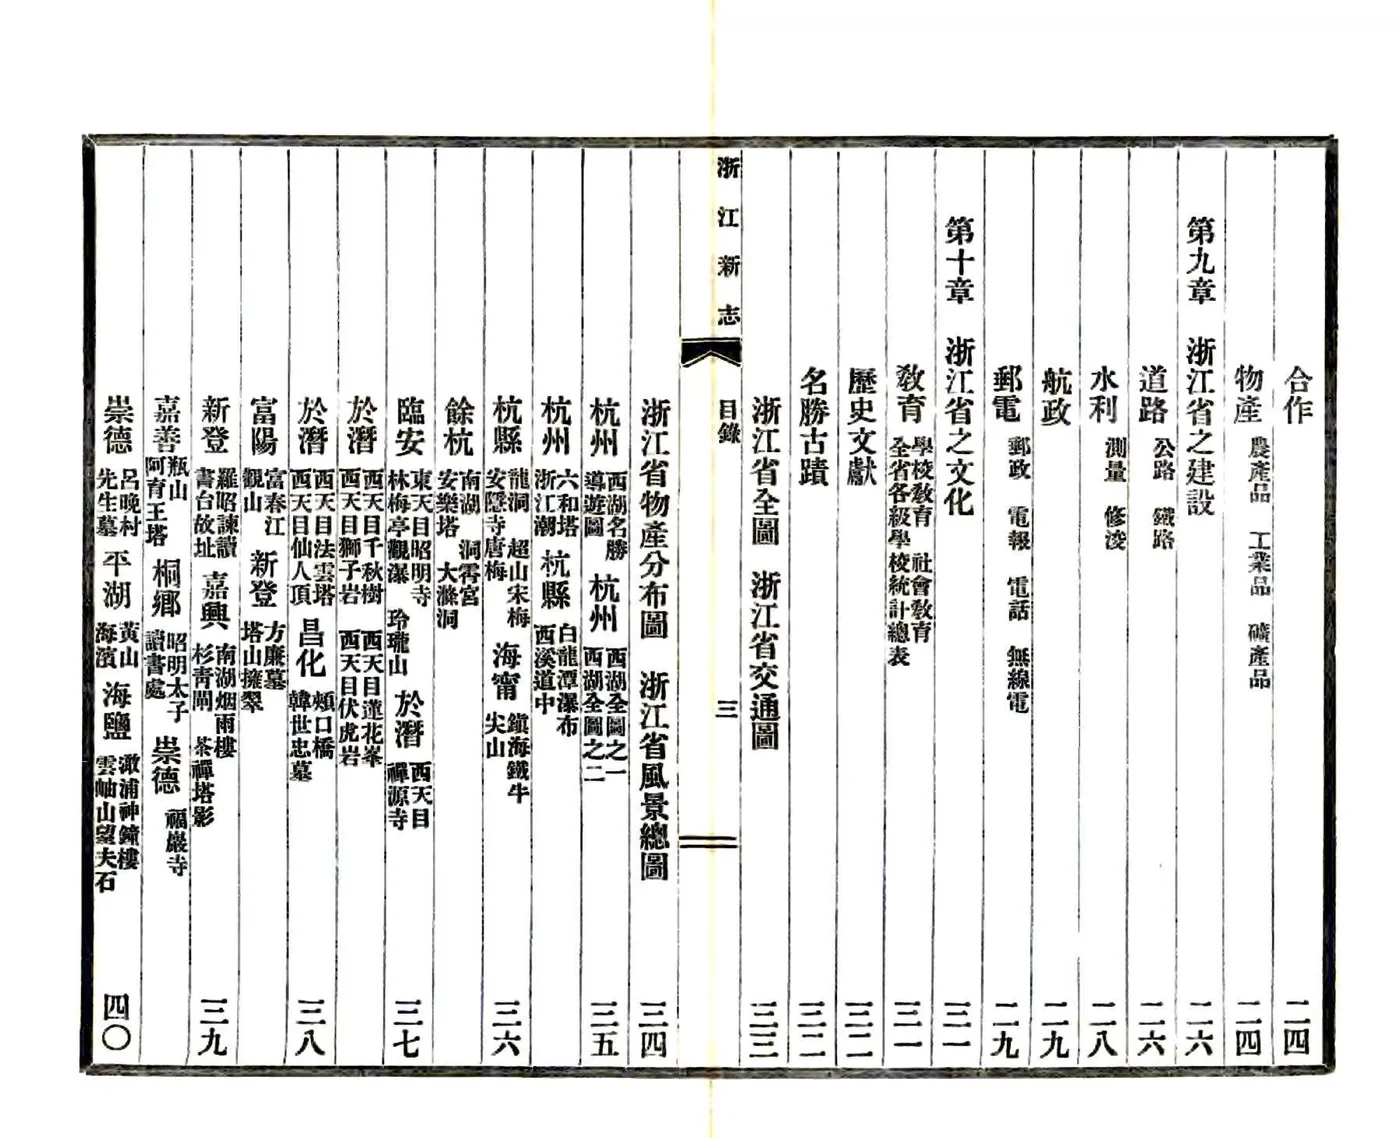 合作 二四
物產 農產品 工業品 礦產品 二四
第九章 浙江省之建設 二六
道路 公路 鐵路 二六
水利 測量 修浚 二八
航政 二九
郵電 郵政 電報 電話 無線電 二九
第十章 浙江省之文化 三一
教育 學校敎育 社會敎育 全省各級學校統計總表 三一
歷史文獻 三二
名勝古蹟 三二
浙江省全圖 浙江省交通圖 三三
浙江新志 目錄 三
浙江省物產分布圖 浙江省風景總圖 三四
杭州 西湖名勝導遊圖 杭州 西湖全圖之一 西湖全圖之二 三五
杭州 六和塔 浙江潮 杭縣 白龍潭瀑布 西溪道中
杭縣 龍洞 超山宋梅 安隱寺唐梅 海甯 鎮海鐵牛 尖山 三六
餘杭 南湖 洞霄宮 安樂塔 大滌洞
臨安 東天目昭明寺 林梅亭觀瀑 玲瓏山 於潛 西天目禪源寺 三七
於潛 西天目千秋樹 西天目蓮花峯 西天目獅子岩 西天目伏虎岩
於潛 西天目法雲塔 西天目仙人頂 昌化 頰口橋 韓世忠墓 三八
富陽 富春江 觀山 新登 方廉墓 塔山擁翠
新登 羅昭諫讀書台故址 嘉興 南湖烟雨樓 杉青閘 茶禪塔影 三九
嘉善 瓶山 阿育王塔 桐鄉 昭明太子讀書處 崇德 福嚴寺
崇德 呂晚村先生墓 平湖 黃山 海濱 海鹽 澉浦神鐘樓 雲岫山望夫石 四〇